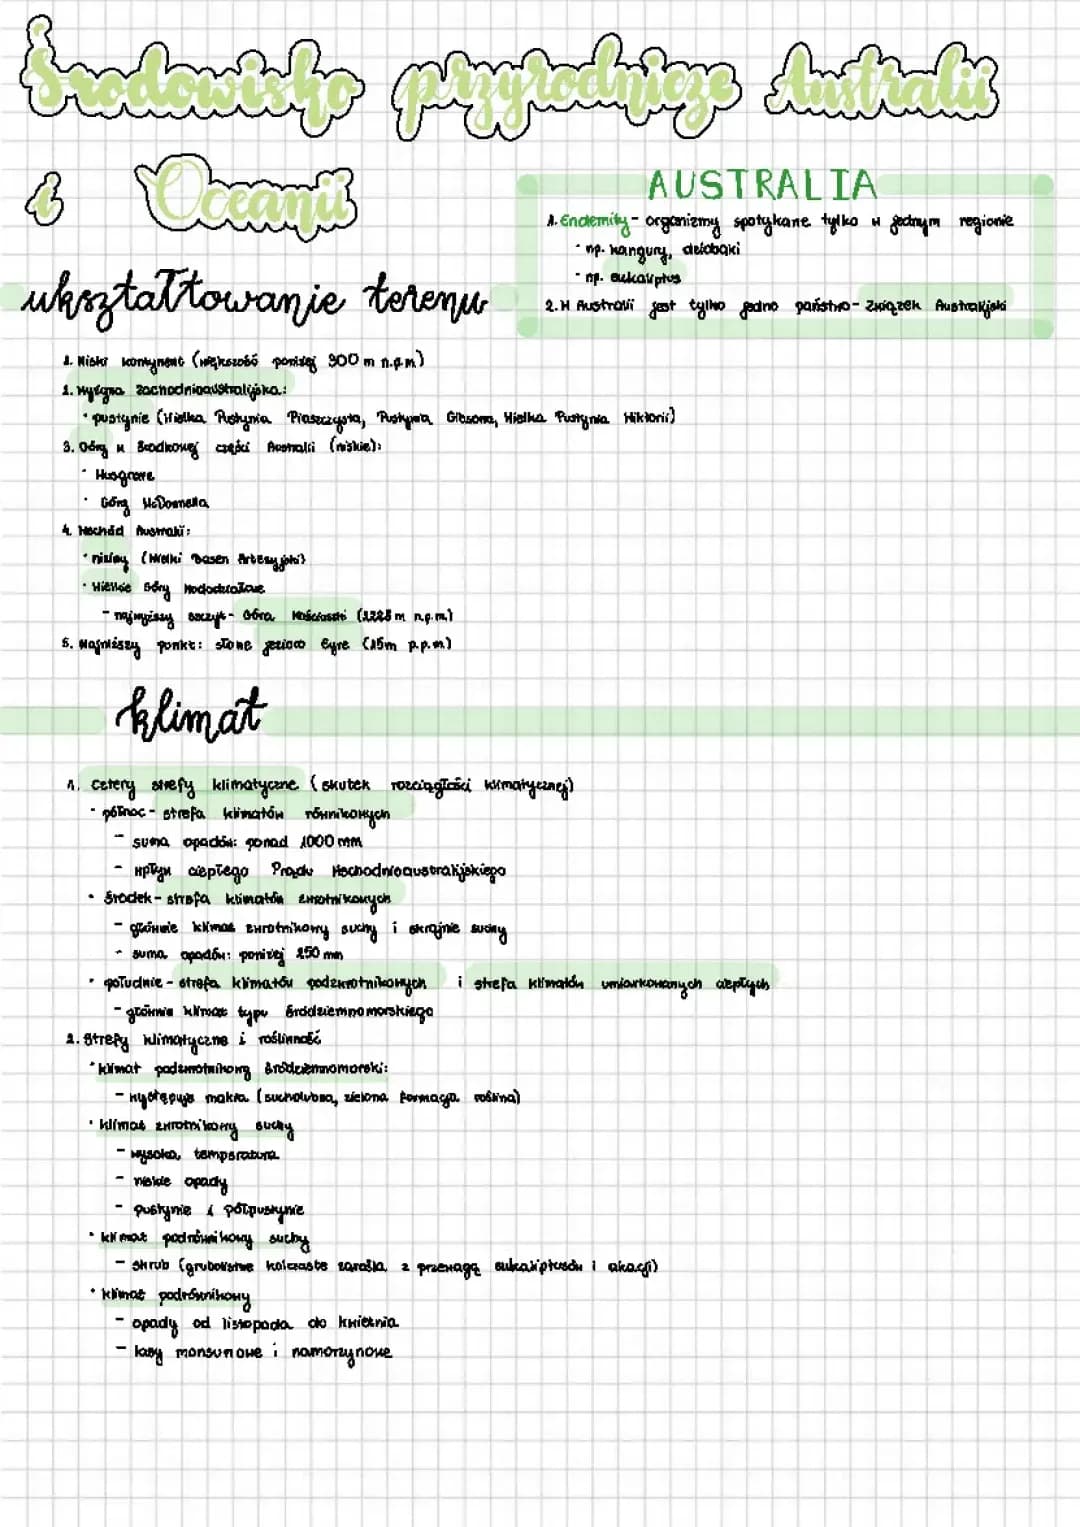 Środowisko przyrodnicze Australii
i Oceanii
AUSTRALIA
1. Endemity - organizmy spotykane tylko w jednym regionie
• np. kangury, dziobaki
• np. eukaliptus
2. W Australii jest tylko jedno państwo - Związek Australijski
ukształtowanie terenu
1. Niski kontynent (większość poniżej 300 m n.p.m)
2. Wyżyna Zachodnioaustralijska:
• pustynie (Wielka Pustynia Piaszczysta, Pustynia Gibsona, Wielka Pustynia Wiktorii)
3. Góry w środkowej części Australii (niskie):
• Musgrave
• Góry McDonnella
4. Wschód Australii:
• niziny (Wielki Basen Artezyjski)
• Wielkie Góry Wododziałowe
- najwyższy szczyt - Góra Kościuszki (2228 m n.p.m.)
5. Najniższy punkt: słone jezioro Eyre (15m p.p.m)
klimat
1. Cztery strefy klimatyczne (skutek rozciągłości klimatycznej)
• północ - strefa klimatów równikowych
- suma opadów: ponad 1000 mm
- wpływ ciepłego Prądu Wschodnioaustralijskiego
• środek - strefa klimatów zwrotnikowych
- głównie klimat zwrotnikowy suchy i skrajnie suchy
- suma opadów: poniżej 250 mm
• południe - strefa klimatów podzwrotnikowych i strefa klimatów umiarkowanych ciepłych
- głównie klimat typu śródziemnomorskiego
2. Strefy klimatyczne i roślinność
• klimat podzwrotnikowy śródziemnomorski:
- występuje makia (sucholubna, zielona formacja roślina)
• klimat zwrotnikowy suchy
- wysoka temperatura
- niskie opady
- pustynie i półpustynie
• klimat podrównikowy suchy
- skrub (grubolistne kolczaste zarośla z przewagą eukaliptusów i akacji)
• klimat podrównikowy
- opady od listopada do kwietnia
- lasy monsunowe i namorzynowe